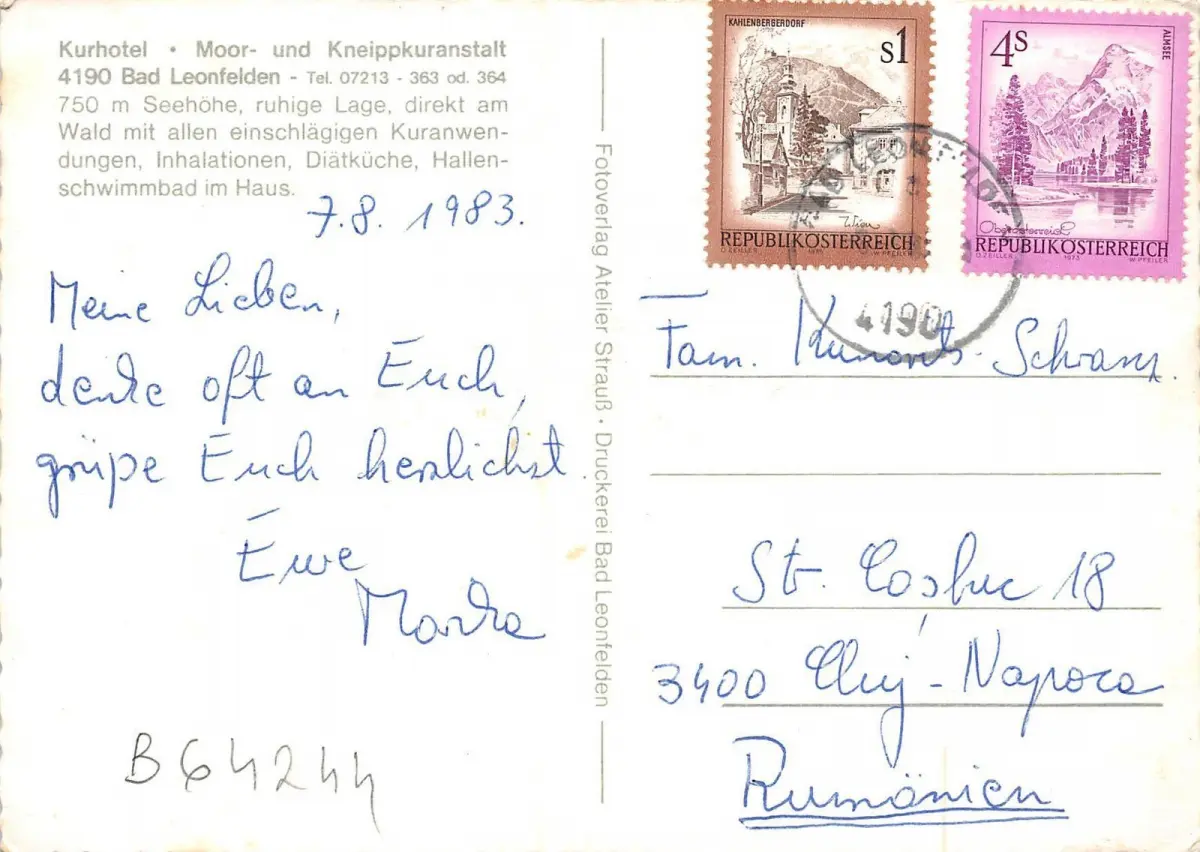 Kurhotel • Moor- und Kneippkuranstalt
4190 Bad Leonfelden - Tel. 07213 - 363 od. 364
750 m Seehöhe, ruhige Lage, direkt am
Wald mit allen einschlägigen Kuranwen-
dungen, Inhalationen, Diätküche, Hallen-
schwimmbad im Haus.
7.8. 1983.
Meine Lieben,
denke oft an Euch,
grüße Euch herzlichst
Eure
B64244
Fotoverlag Atelier Strauß • Druckerei Bad Leonfelden
KAHLENBERGERDORF
S1
Wien
REPUBLIK ÖSTERREICH
O.ZEILLER 1975 W.PFEILER
4S
ALMSEE
Oberösterreich
REPUBLIK ÖSTERREICH
O.ZEILLER 1973 W.PFEILER
BAD LEONFELDEN
4190
Fam.
Str. Coşbuc 18
3400 Cluj-Napoca
Rumänien